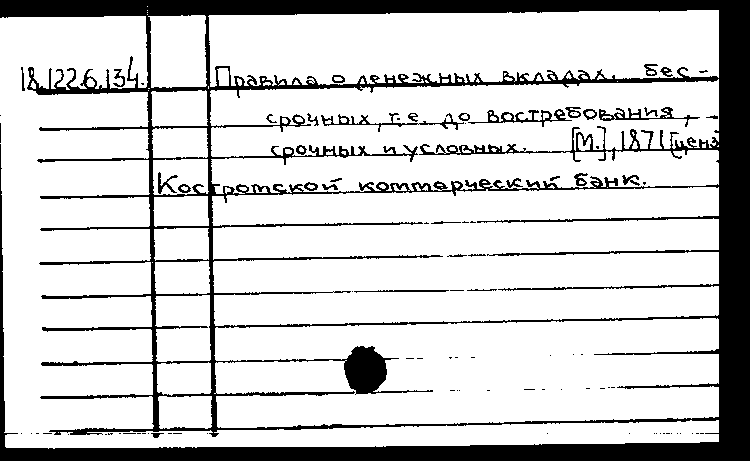 18.122.6.134. Правила о денежных вкладах. бес-
срочных, т.е. до востребования,
срочных и условных. [М.], 1871 [ценз
Костромской коммерческий банк.